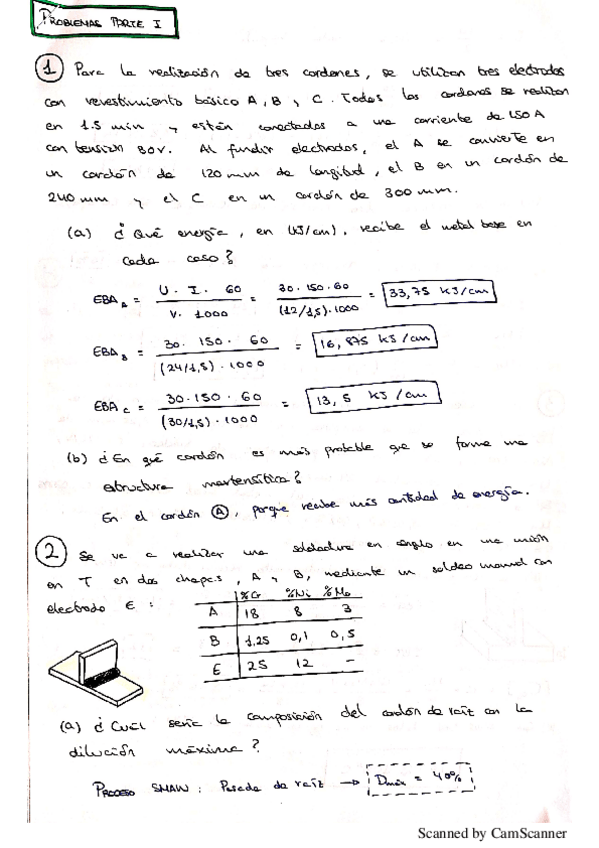 PROBLEMAS PARTE I
1 Para la realización de tres cordones, se utilizan tres electrodos
con revestimiento básico A, B y C. Todos los cordones se realizan
en 1.5 min y están conectados a una corriente de 150 A
con tensión 30V. Al fundir electrodos, el A se convierte en
un cordón de 120 mm de longitud, el B en un cordón de
240 mm y el C en un cordón de 300 mm.
(a) ¿Qué energía, en (kJ/cm), recibe el metal base en
cada caso?
EBA A = U. I. 60 / V. 1000 = 30. 150. 60 / (12/1,5).1000 = 33,75 KJ/cm
EBA B = 30. 150. 60 / (24/1,5).1000 = 16,875 KJ/cm
EBA C = 30.150.60 / (30/1,5).1000 = 13,5 KJ/cm
(b) ¿En qué cordón es más probable que se forme una
estructura martensítica?
En el cordón A, porque recibe más cantidad de energía.
2 Se va a realizar una soldadura en ángulo en una unión
en T en dos chapas, A y B, mediante un soldeo manual con
electrodo E:
%Cr %Ni %Mo
A 18 8 3
B 1,25 0,1 0,5
E 25 12 -
(a) ¿Cuál sería la composición del cordón de raíz con la
dilución máxima?
PROCESO SMAW: Pasada de raíz → Dmáx = 40%
Scanned by CamScanner